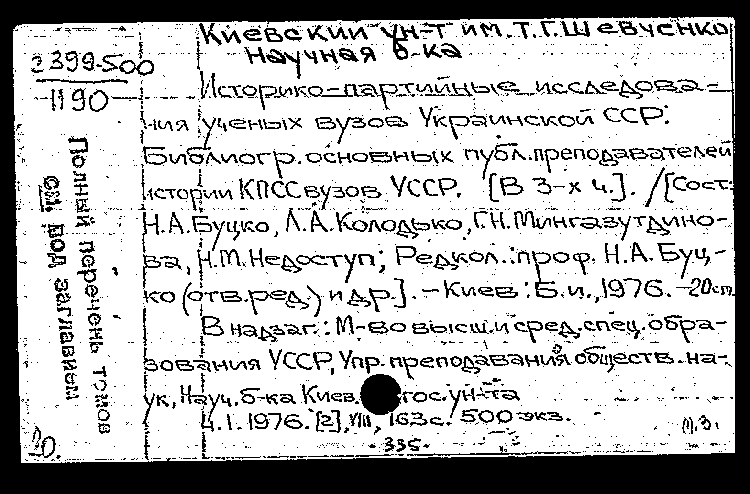 Киевский ун-т им. Т.Г. Шевченко
Научная б-ка
2399-500
1190
Историко-партийные исследова-
ния ученых вузов Украинской ССР:
Библиогр. основных публ. преподавателей
истории КПСС вузов УССР. [В 3-х ч.]. / [Сост:
Н.А. Буцко, Л.А. Колодько, Г.Н. Мингазутдино-
ва, Н.М. Недоступ; Редкол.: проф. Н.А. Буц-
ко (отв. ред.) и др.]. – Киев: Б.и., 1976. – 20см.
В надзаг.: М-во высш. и сред. спец. обра-
зования УССР, Упр. преподавания обществ. на-
ук, Науч. б-ка Киев. гос. ун-та
Ч.1. 1976. [2], VIII, 163с. 500 экз.
335.
20.
Полный перечень томов
см. под заглавием